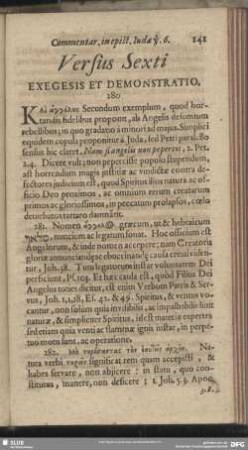 Commentar. in epist. Judæ ℣. 6. 141
Versus Sexti
EXEGESIS ET DEMONSTRATIO,
280
Secundum exemplum, quod hor-
tandis fidelibus proponit, ab Angelis desumtum
rebellibus; in quo gradatio à minori ad majus. Simplici
equidem copula proponitur à Juda, sed Petri par. 80
sensus hic claret. Nam si angelis non pepercit, 2. Pet.
2.4. Dicere vult; non pepercisse populo stupendum,
ast horrendum magis institiæ ac vindictæ contra de-
sectores judicium est, quod Spiritus illos natura ac of-
ficio Deo proximos, ac omnium rerum creatarum
primos ac gloriosissimos, in peccatum prolapsos, cœlo
deturbatus tartaro damnarit.
281. Nomen græcum, ut & hebraicum
nuncium ac legatum sonat. Hoc officium est
Angelorum, & inde nomen accepere; tum Creatoris
gloriæ annunciandæ
tur, Joh. 38. Tum legatorum instar voluntatem Dei
perficiunt, Ps. 103. Et hac causa est, quod Filius Dei
Angelus toties dicitur, est enim Verbum Patris & Ser-
vus, Joh. 1,1,18, Es. 42. & 49. Spiritus, & ventus vo-
cantur, non solum quia invisibilis, ac impalpabilis sunt
naturæ, & simpliciter Spiritus, id est materiæ expertes
sed etiam quia venti ac flammæ ignis instar, in perpe-
tuo motu sunt, ac operatione.
282. Na-
tura verbi significat rem quam accepisti, &
habes servare, non abjicere: in statu, quo con-
stitutus, manere, non desicere 1. Joh. 5.3. Apoc.